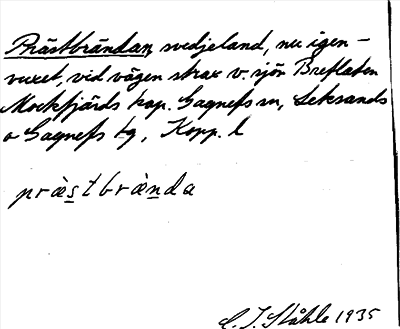 Prästbrändan, svedjeland, nu igen-
vuxet, vid vägen strax v. sjön Breflaten
Mockfjärds kap. Gagnefs sn, Leksands
o Gagnefs tg, Kopp. l
präs̲tbrän̲da
C. I. Ståhle 1935